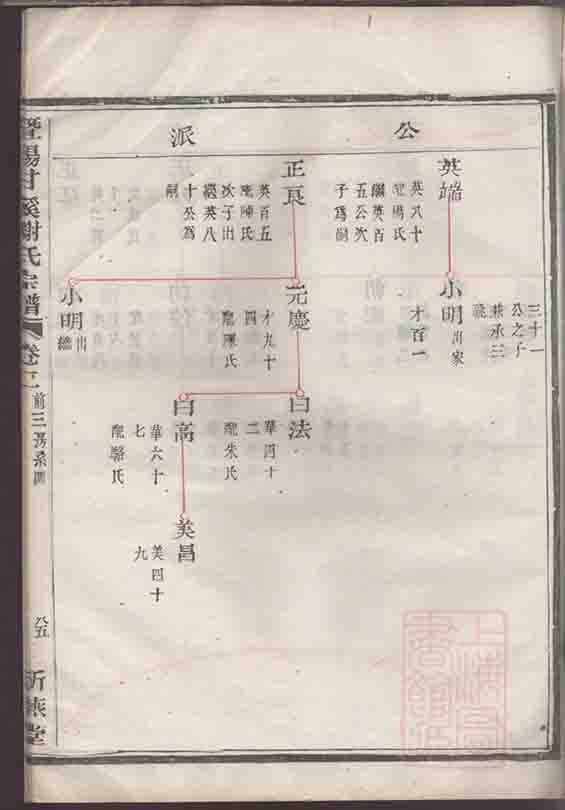 公
派
英端
英八十
配楊氏
繼英百
五公次
子爲嗣
小明
出家
才百一
三十一
公之子
兼承三
正良
英百五
配陳氏
次子出
繼英八
十公爲
嗣
元慶
才九十
四
配陳氏
小明
出繼
曰法
華四十
二
配朱氏
曰高
華六十
七
配駱氏
美昌
美四十
九
暨陽甘溪謝氏宗譜
卷三
前三房系圖
八五
上海圖書館